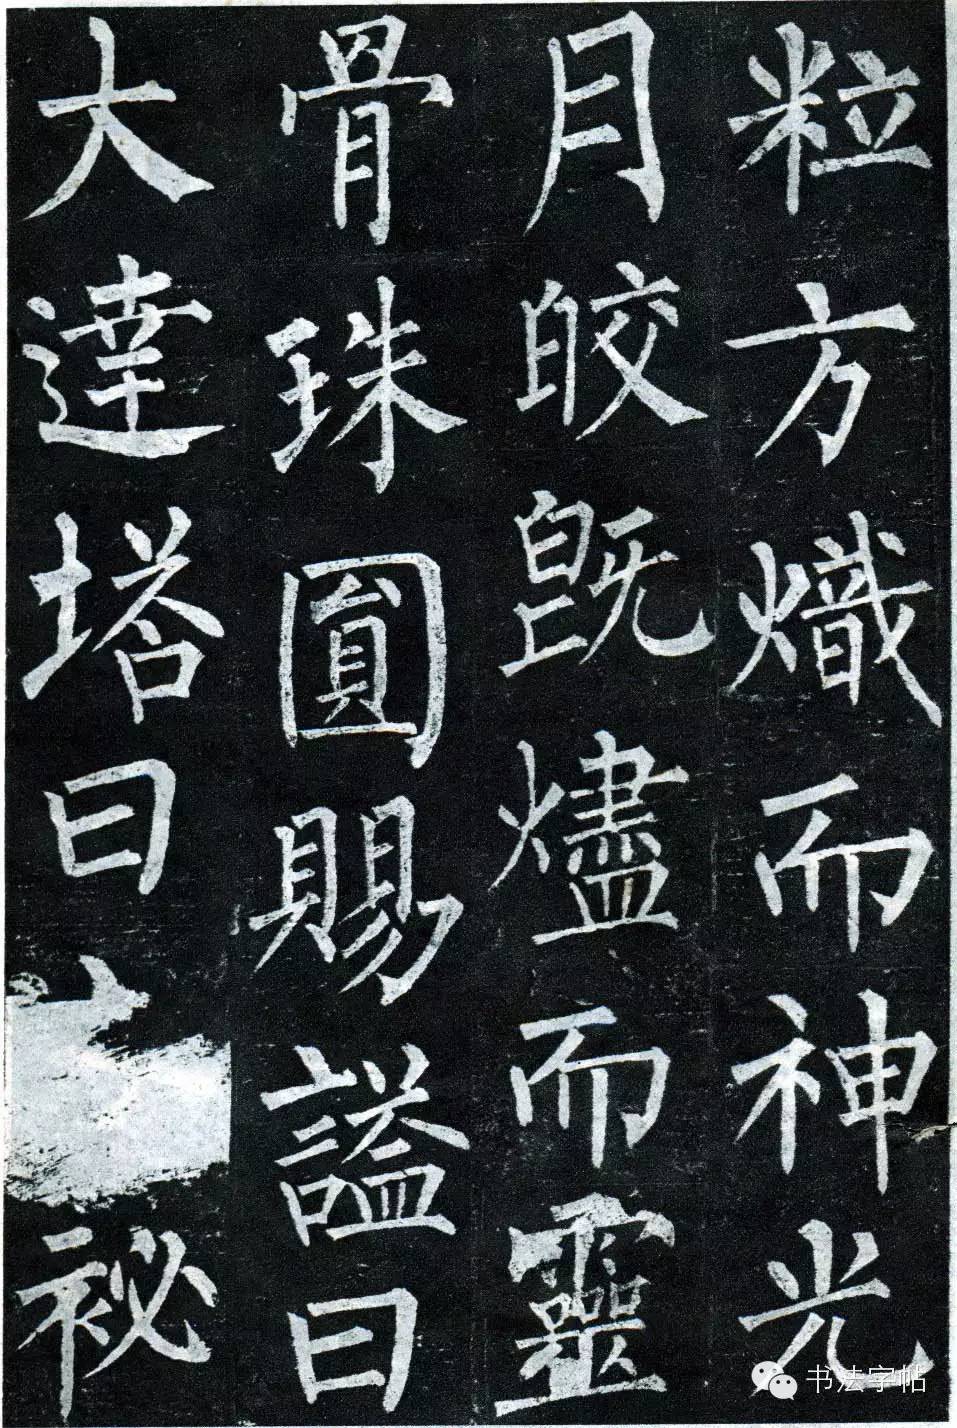 粒方熾而神光
月皎既燼而靈
骨珠圓賜謚曰
大達塔曰祕
书法字帖